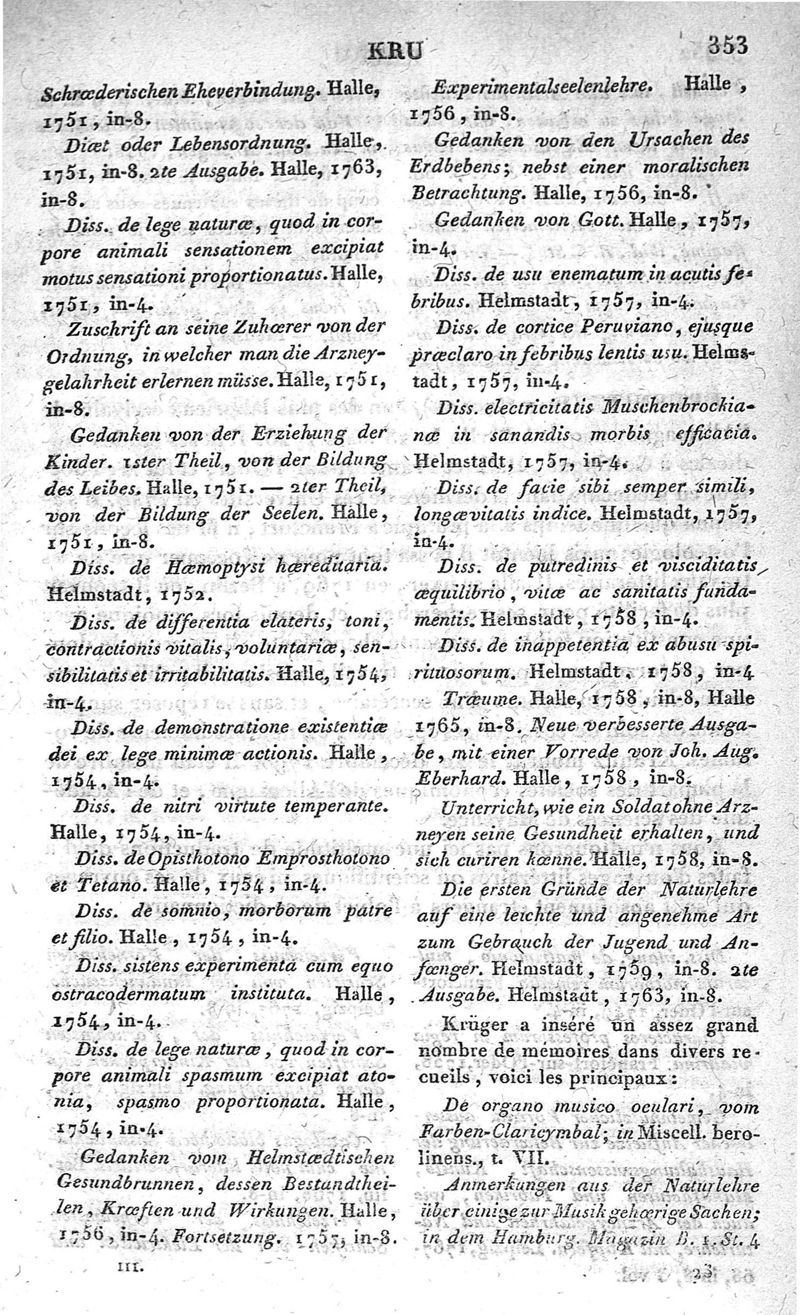 KRU 353
Schrœderischen Eheverbindung. Halle,
1751, in-8.
Diœt oder Lebensordnung. Halle,
1751, in-8. 2te Ausgabe. Halle, 1763,
in-8.
Diss. de lege naturæ, quod in cor-
pore animali sensationem excipiat
motus sensationi proportionatus. Halle,
1751, in-4.
Zuschrift an seine Zuhœrer von der
Ordnung, in welcher man die Arzney-
gelahrheit erlernen müsse. Halle, 1751,
in-8.
Gedanken von der Erziehung der
Kinder. 1ster Theil, von der Bildung
des Leibes. Halle, 1751. — 2ter Theil,
von der Bildung der Seelen. Halle,
1751, in-8.
Diss. de Hæmoptysi hæreditaria.
Helmstadt, 1752.
Diss. de differentia elateris, toni,
contractionis vitalis, voluntariæ, sen-
sibilitatis et irritabilitatis. Halle, 1754,
in-4.
Diss. de demonstratione existentiæ
dei ex lege minimæ actionis. Halle,
1754, in-4.
Diss. de nitri virtute temperante.
Halle, 1754, in-4.
Diss. de Opisthotono Emprosthotono
et Tetano. Halle, 1754, in-4.
Diss. de somnio, morborum patre
et filio. Halle, 1754, in-4.
Diss. sistens experimenta cum equo
ostracodermatum instituta. Halle,
1754, in-4.
Diss. de lege naturæ, quod in cor-
pore animali spasmum excipiat ato-
nia, spasmo proportionata. Halle,
1754, in-4.
Gedanken vom Helmstœdtischen
Gesundbrunnen, dessen Bestandthei-
len, Krœften und Wirkungen. Halle,
1756, in-4. Fortsetzung. 1757, in-8.
III.
Experimentalseelenlehre. Halle,
1756, in-8.
Gedanken von den Ursachen des
Erdbebens; nebst einer moralischen
Betrachtung. Halle, 1756, in-8.
Gedanken von Gott. Halle, 1757,
in-4.
Diss. de usu enematum in acutis fe-
bribus. Helmstadt, 1757, in-4.
Diss. de cortice Peruviano, ejusque
præclaro in febribus lentis usu. Helms-
tadt, 1757, in-4.
Diss. electricitatis Muschenbrockia-
næ in sanandis morbis efficacia.
Helmstadt, 1757, in-4.
Diss. de facie sibi semper simili,
longævitalis indice. Helmstadt, 1757,
in-4.
Diss. de putredinis et visciditatis
æquilibrio, vitæ ac sanitatis funda-
mentis. Helmstadt, 1758, in-4.
Diss. de inappetentia ex abusu spi-
rituosorum. Helmstadt, 1758, in-4
Træume. Halle, 1758, in-8, Halle
1765, in-8. Neue verbesserte Ausga-
be, mit einer Vorrede von Joh. Aug.
Eberhard. Halle, 1758, in-8.
Unterricht, wie ein Soldat ohne Arz-
neyen seine Gesundheit erhalten, und
sich curiren kœnne. Halle, 1758, in-8.
Die ersten Gründe der Naturlehre
auf eine leichte und angenehme Art
zum Gebrauch der Jugend und An-
fœnger. Helmstadt, 1759, in-8. 2te
Ausgabe. Helmstadt, 1763, in-8.
Krüger a inséré un assez grand
nombre de mémoires dans divers re-
cueils, voici les principaux :
De organo musico oculari, vom
Farben-Claricymbal; in Miscell. bero-
linens., t. VII.
Anmerkungen aus der Naturlehre
über einige zur Musik gehœrige Sachen;
in dem Hamburg. Magazin B. 1. St. 4
23